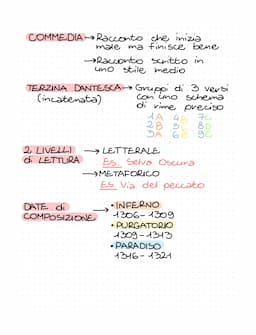 COMMEDIA → Racconto che inizia
male ma finisce bene
→ Racconto scritto in
uno stile medio
TERZINA DANTESCA → Gruppo di 3 versi
(incatenata) con uno schema
di rime preciso
1A 4B 7C
2B 5C 8D
3A 6B 9C
2 LIVELLI → LETTERALE
di LETTURA Es. Selva Oscura
→ METAFORICO
Es. Via del peccato
DATE di • INFERNO
COMPOSIZIONE 1306-1309
• PURGATORIO
1309-1313
• PARADISO
1316-1321